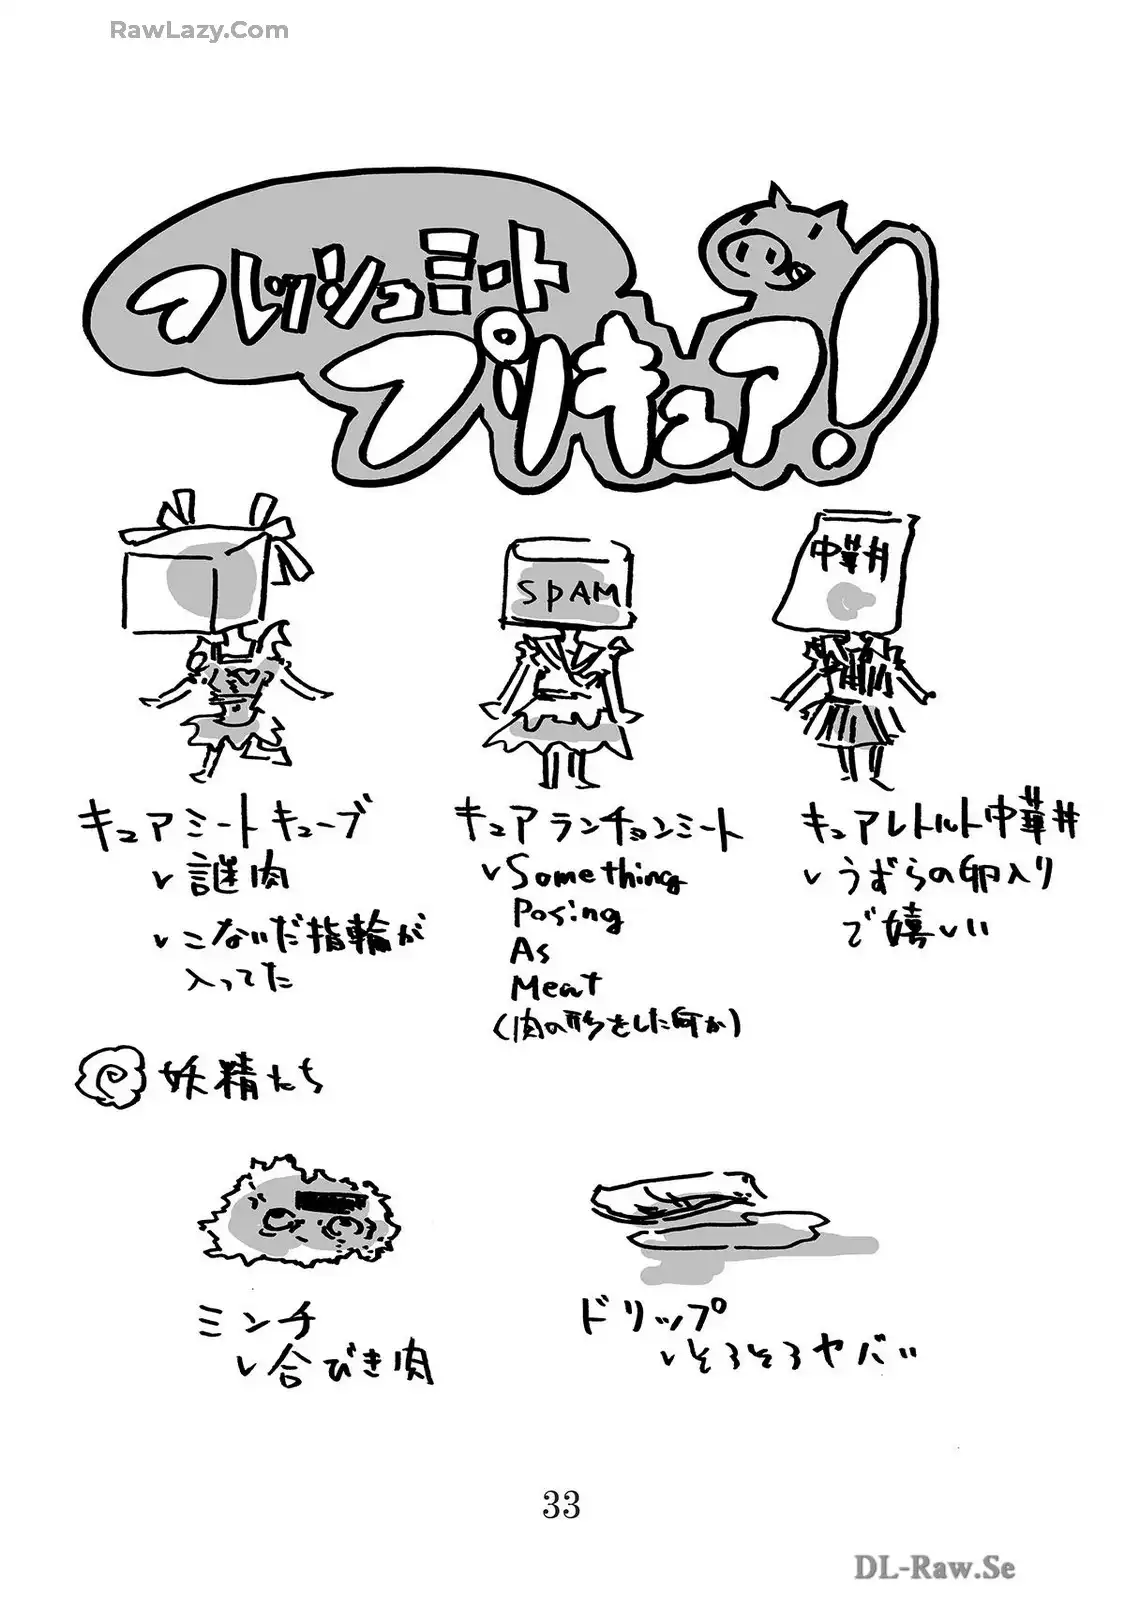 RawLazy.Com
フレッシュミート
プリキュア!
SPAM
中華丼
キュアミートキューブ
謎肉
こないだ指輪が
入ってた
キュアランチョンミート
Something
Posing
As
Meat
(肉の形をした何か)
キュアレトルト中華丼
うずらの卵入り
で嬉しい
妖精たち
ミンチ
合びき肉
ドリップ
そろそろヤバい
33
DL-Raw.Se